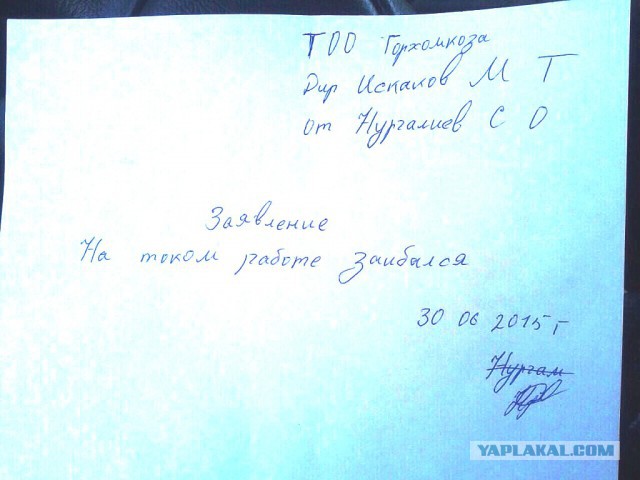 ТОО Горхомкоза
Дир Искаков М Т
от Нургалиев С О
Заявление
На таком работе Заибался
30 06 2015 г
Нургам
YAPLAKAL.COM